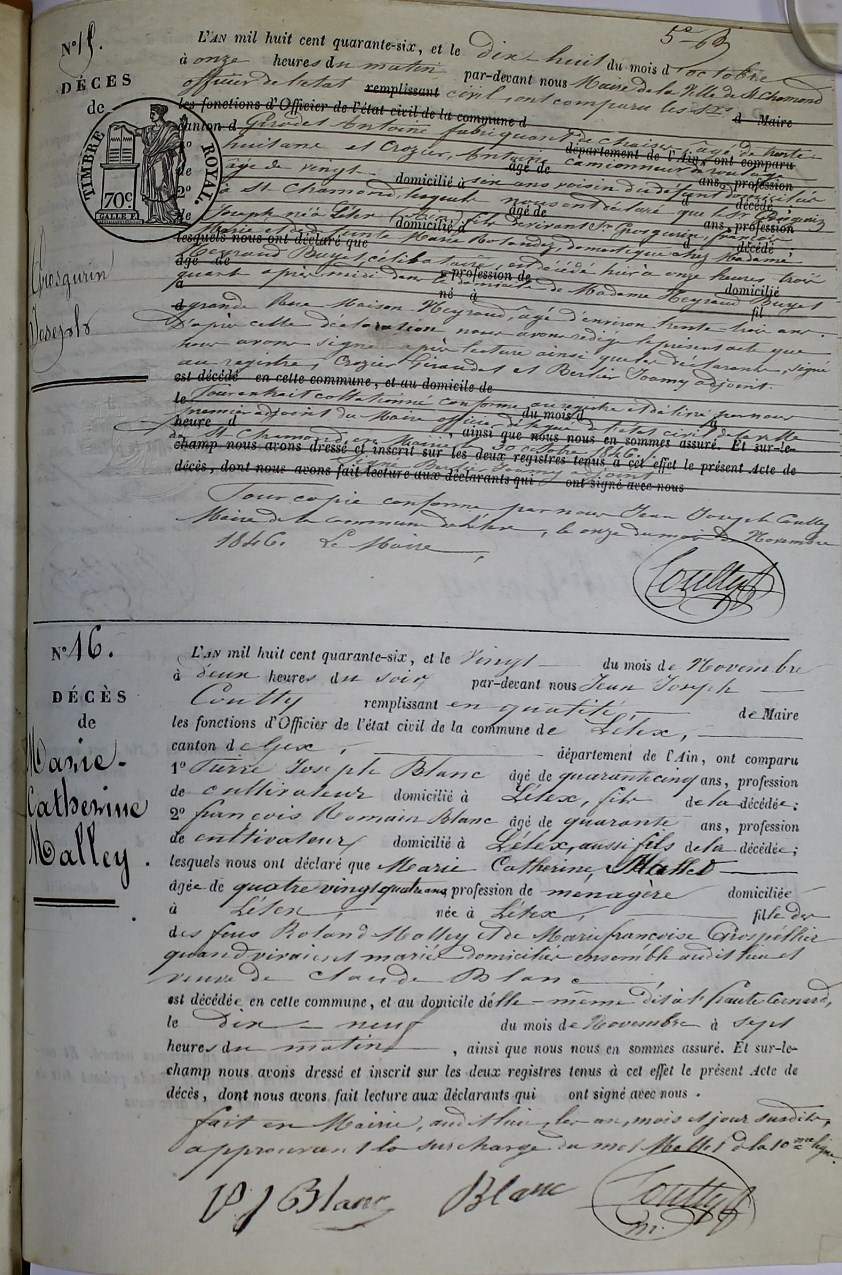 5e
N° 15.
DÉCÈS
de
TIMBRE ROYAL
70c
Joseph
L'AN mil huit cent quarante-six, et le dix-huit du mois d'octobre
à onze heures du matin par-devant nous Maire de la Ville de St Chamond
officier de l'état remplissant civil, ont comparu les Srs
les fonctions d'Officier de l'état civil de la commune d d Maire
canton d Girodet Antoine fabriquant de chaises, âgé de trente
département de l'Ain ont comparu
1° huit ans et Crozier, Antoine camionneur
âgé de vingt six ans voisin du défunt domiciliés
âgé de ans, profession
2° à St Chamond, lesquels nous ont déclaré que le Sr
domicilié à d décédé
de Joseph né à Lélex
âgé de ans, profession
domicilié à d décédé
lesquels nous ont déclaré que
Marie Rolandez, domestique chez Madame
Neyraud Buyet, célibataire, est décédé hier à onze heures trois
âgé de profession de domicilié
quart après midi dans le domicile de Madame Neyraud Buyet
à né à fil
d grande Rue Maison Neyraud, âgé d'environ trente-trois ans.
D'après cette déclaration nous avons rédigé le présent acte que
nous avons signé après lecture ainsi que les déclarants, signé
au registre, Crozier Giraudet et Bertier Joamy adjoint.
est décédé en cette commune, et au domicile de
le Pour extrait collationné conforme au registre et délivré par nous
du mois d à
premier adjoint du Maire officier délégué de l'état civil de la ville
heure d , ainsi que nous nous en sommes assuré. Et sur-le-
de St Chamond, en Mairie 20 octobre 1846.
champ nous avons dressé et inscrit sur les deux registres tenus à cet effet le présent Acte de
décès, dont nous avons fait lecture aux déclarants qui ont signé avec nous
Pour copie conforme par nous Jean Joseph Coutty
Maire de la commune de Lélex, le onze du mois de Novembre
1846. Le Maire,
Coutty
N° 16.
DÉCÈS
de
Marie-
Catherine
Malley.
L'AN mil huit cent quarante-six, et le vingt du mois de Novembre
à deux heures du soir par-devant nous Jean Joseph
Coutty remplissant en qualité de Maire
les fonctions d'Officier de l'état civil de la commune de Lélex,
canton de Gex, département de l'Ain, ont comparu
1° Pierre Joseph Blanc âgé de quarante cinq ans, profession
de cultivateur domicilié à Lélex, fils de la décédée;
2° françois Romain Blanc âgé de quarante ans, profession
de cultivateur domicilié à Lélex, aussi fils de la décédée;
lesquels nous ont déclaré que Marie Catherine Mallet
âgée de quatre vingt quatre ans, profession de ménagère domiciliée
à Lélex, née à Lélex, fille de
des feus Roland Malley et de Marie françoise Grospellier
quand vivaient mariés domiciliés ensemble audit lieu et
veuve de Claude Blanc
est décédée en cette commune, et au domicile d'elle-même dit à
le dix-neuf du mois de Novembre à sept
heures du matin, ainsi que nous nous en sommes assuré. Et sur-le-
champ nous avons dressé et inscrit sur les deux registres tenus à cet effet le présent Acte de
décès, dont nous avons fait lecture aux déclarants qui ont signé avec nous.
fait en Mairie, audit lieu, les an, mois et jour susdits,
approuvant la surcharge du mot Mallet à la 10me ligne.
P J Blanc Blanc Coutty
m.